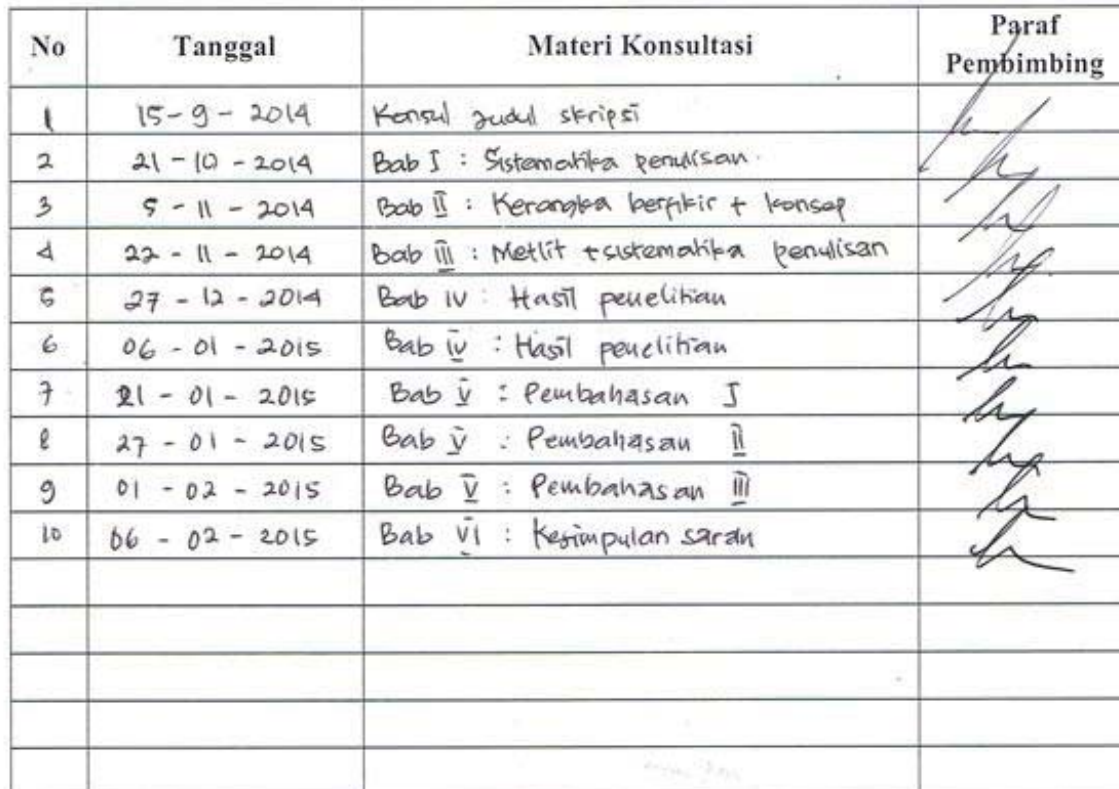 No Tanggal Materi Konsultasi Paraf Pembimbing
1 15-9-2014 Konsul judul skripsi
2 21-10-2014 Bab I : Sistematika penulisan.
3 5-11-2014 Bab II : Kerangka berfikir + konsep
4 22-11-2014 Bab III : Metlit + sistematika penulisan
5 27-12-2014 Bab IV : Hasil penelitian
6 06-01-2015 Bab IV : Hasil penelitian
7 21-01-2015 Bab V : Pembahasan I
8 27-01-2015 Bab V : Pembahasan II
9 01-02-2015 Bab V : Pembahasan III
10 06-02-2015 Bab VI : Kesimpulan saran